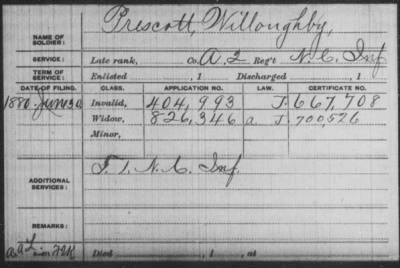 NAME OF SOLDIER: Prescott, Willoughby,
SERVICE: Late rank, Co. A, 2 Reg't N. C. Inf.
TERM OF SERVICE: Enlisted , 1 Discharged , 1
DATE OF FILING. CLASS. APPLICATION NO. LAW. CERTIFICATE NO.
1880 Jun 30 Invalid, 404,993 J. 667,708
Widow, 826,346 a. J. 700,526
Minor,
ADDITIONAL SERVICES: F. 1. N. C. Inf.
REMARKS:
Died , 1 , at